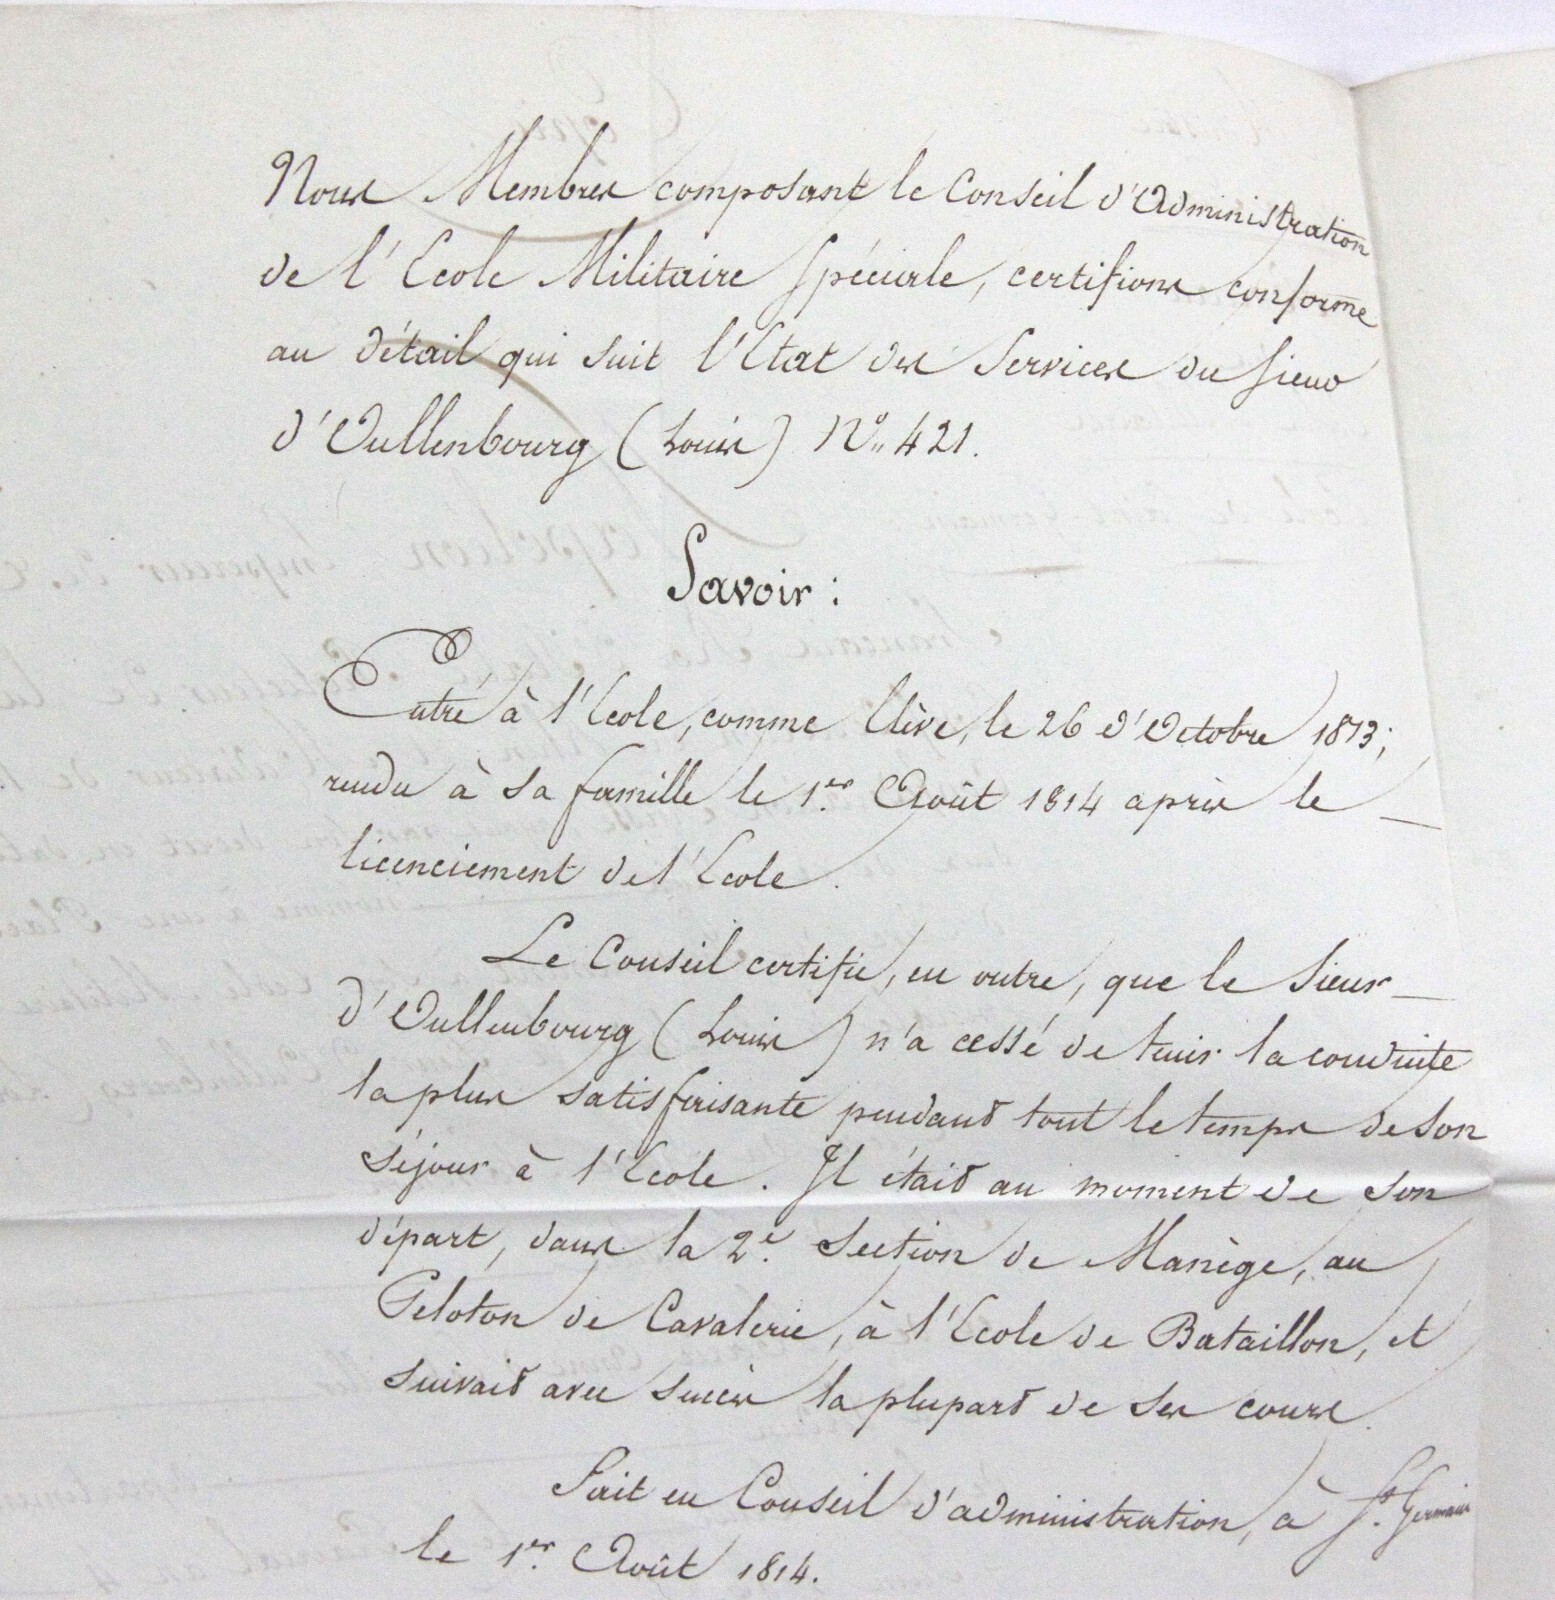 Nous Membres composant le Conseil d'Administration
de l'Ecole Militaire Spéciale, certifions conforme
au détail qui suit l'Etat des Services du Sieur
d'Oullenbourg (Louis) N.° 421.
Savoir :
Entré à l'Ecole, comme Elève, le 26 d'Octobre 1813;
rendu à sa famille le 1.er Août 1814 après le
licenciement de l'Ecole.
Le Conseil certifie, en outre, que le Sieur
d'Oullenbourg (Louis) n'a cessé de tenir la conduite
la plus satisfaisante pendant tout le temps de son
séjour à l'Ecole. Il était au moment de son
départ, dans la 2.e Section de Manège, au
Peloton de Cavalerie, à l'Ecole de Bataillon, et
suivait avec succès la plupart de ses cours.
Fait en Conseil d'administration, à S.t Germain
le 1.er Août 1814.